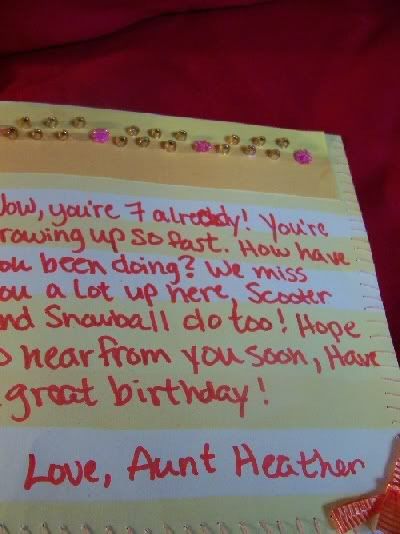 Wow, you're 7 already! You're
rowing up so fast. How have
ou been doing? We miss
ou a lot up here, Scooter
nd Snowball do too! Hope
o hear from you soon, Have
great birthday!
Love, Aunt Heather